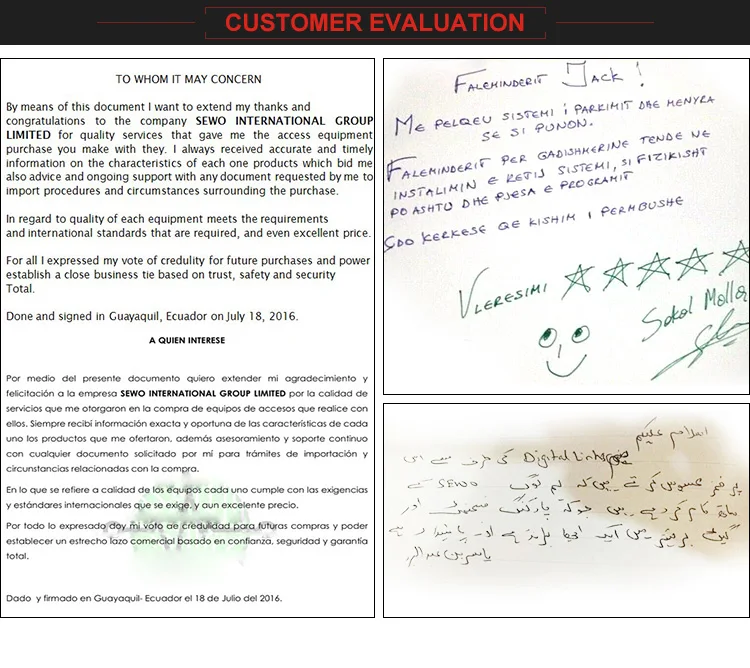 CUSTOMER EVALUATION
TO WHOM IT MAY CONCERN
By means of this document I want to extend my thanks and
congratulations to the company SEWO INTERNATIONAL GROUP
LIMITED for quality services that gave me the access equipment
purchase you make with they. I always received accurate and timely
information on the characteristics of each one products which bid me
also advice and ongoing support with any document requested by me to
import procedures and circumstances surrounding the purchase.
In regard to quality of each equipment meets the requirements
and international standards that are required, and even excellent price.
For all I expressed my vote of credulity for future purchases and power
establish a close business tie based on trust, safety and security
Total.
Done and signed in Guayaquil, Ecuador on July 18, 2016.
A QUIEN INTERESE
Por medio del presente documento quiero extender mi agradecimiento y
felicitación a la empresa SEWO INTERNATIONAL GROUP LIMITED por la calidad de
servicios que me otorgaron en la compra de equipos de accesos que realice con
ellos. Siempre recibí información exacta y oportuna de las características de cada
uno los productos que me ofertaron, además asesoramiento y soporte continuo
con cualquier documento solicitado por mí para trámites de importación y
circunstancias relacionadas con la compra.
En lo que se refiere a calidad de los equipos cada uno cumple con las exigencias
y estándares internacionales que se exige, y aun excelente precio.
Por todo lo expresado doy mi voto de credulidad para futuras compras y poder
establecer un estrecho lazo comercial basado en confianza, seguridad y garantía
total.
Dado y firmado en Guayaquil- Ecuador el 18 de Julio del 2016.
FALEMINDERIT JACK !
ME PELQEU SISTEMI I PARKIMIT DHE MENYRA
SE SI PUNON.
FALEMINDERIT PER GADISHMERINE TENDE NE
INSTALIMIN E KETIJ SISTEMI, SI FIZIKISHT
PO ASHTU DHE PJESA E PROGRAMIT
ÇDO KERKESE QE KISHIM I PERMBUSHE
VLERESIMI
Sokol Mollor
اسلام علیکم
Digital Links کی طرف سے اس
پر فخر محسوس کرتے ہیں کہ ہم لوگ SEWO کے
ساتھ کام کر رہے ہیں جو کہ پارکنگ اور
گیٹ بیریئر میں ایک اچھا برانڈ ہے اور پائیدار ہے